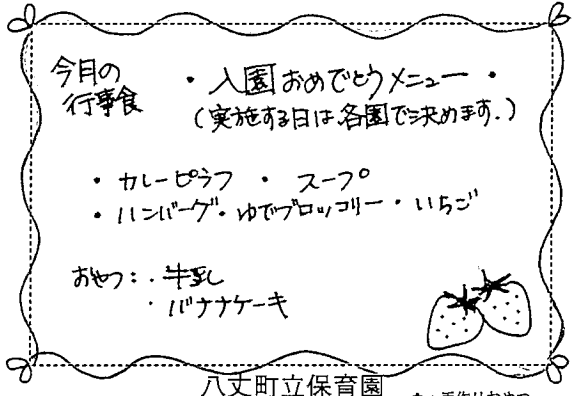 今月の
行事食
・入園おめでとうメニュー・
(実施する日は各園で決めます.)
・カレーピラフ ・ スープ
・ハンバーグ・ゆでブロッコリー・いちご
おやつ:・牛乳
・バナナケーキ
八丈町立保育園